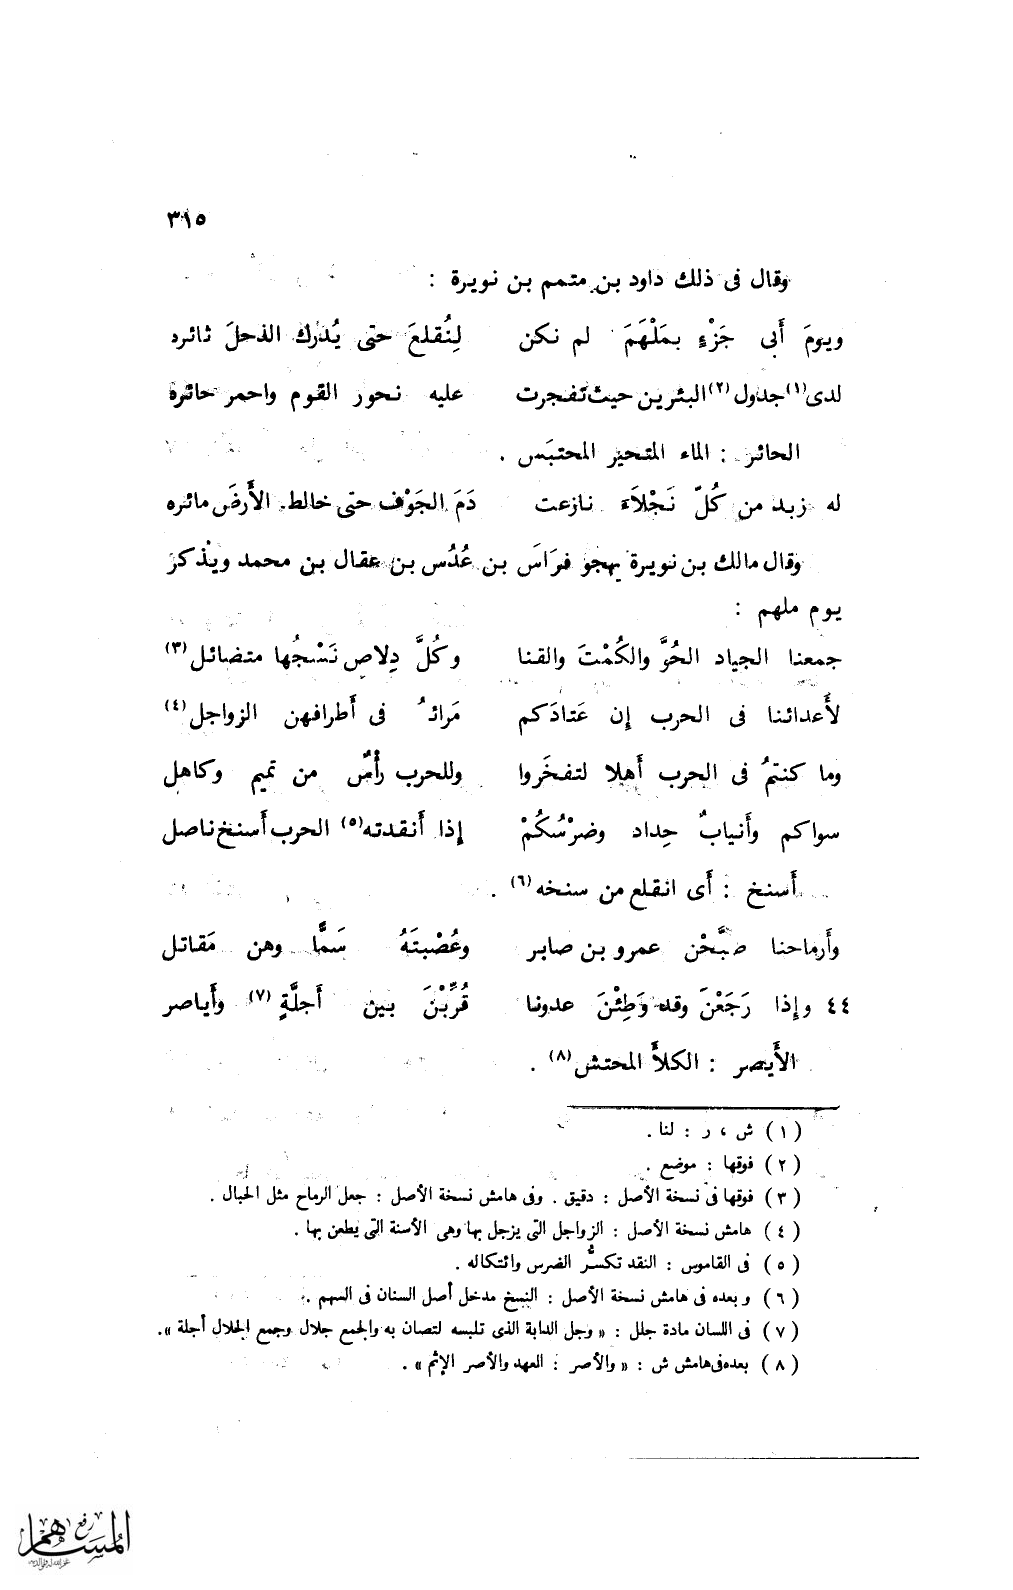 ٣١٥
وقال فى ذلك داود بن متمم بن نويرة :
ويومَ أَبى جَزْءٍ بمَلْهَمَ لم نكن لِنُقلعَ حتى يُدْرك الذحلَ ثائره
لدى(١) جداول(٢) البئرين حيث تفجرت عليه نحور القوم واحمر حائره
الحائر : الماء المتحير المحتبَس .
له زبد من كُلّ نَجْلاَءَ نازعت دَمَ الجَوْف حتى خالط الأَرضَ مائره
وقال مالك بن نويرة يهجو فرَاسَ بن عُدُس بن عقال بن محمد ويذكر
يوم ملهم :
جمعنا الجياد الحُوَّ والكُمْتَ والقنا وكُلَّ دِلاصٍ نَسْجُها متضائل(٣)
لأَعدائنا فى الحرب إن عَتادَكم مَرائدُ فى أَطرافهن الزواجل(٤)
وما كنتمُ فى الحرب أَهلا لتفخَروا وللحرب رأْسٌ من تميم وكاهل
سواكم وأَنيابٌ حِداد وضرْسُكُمْ إذا أَنقدته(٥) الحرب أَسنخ ناصل
أَسنخ : أَى انقلع من سنخه(٦) .
وأَرماحنا صَبَّحْن عمرو بن صابر وعُصْبتَهُ سَمًّا وهن مَقاتل
٤٤ وإذا رَجَعْنَ وقد وَطِئْنَ عدونا قُرِّبْنَ بين أَجلَّةٍ(٧) وأَياصر
الأَيصر : الكلأَ المحتش(٨) .
(١) ش ، ر : لنا .
(٢) فوقها : موضع .
(٣) فوقها فى نسخة الأصل : دقيق . وفى هامش نسخة الأصل : جعل الرماح مثل الحبال .
(٤) هامش نسخة الأصل : الزواجل التى يزجل بها وهى الأسنة التى يطعن بها .
(٥) فى القاموس : النقد تكسُّر الضرس وائتكاله .
(٦) وبعده فى هامش نسخة الأصل : النسخ مدخل أصل السنان فى السهم .
(٧) فى اللسان مادة جلل : « وجل الدابة الذى تلبسه لتصان به والجمع جلال وجمع الجلال أجلة ».
(٨) بعده فى هامش ش : « والأصر : العهد والأصر الإثم » .
رفع
المساهم